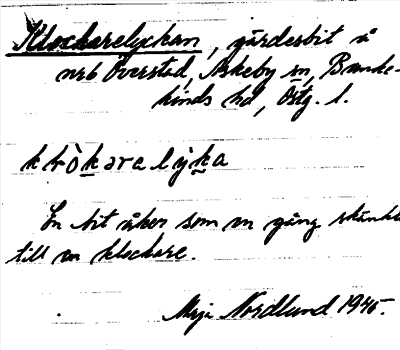 Klockarelyckan, gärdesbit å
nr 6 Överstad, Askeby sn, Banke-
kinds hd, Östg. l.
klòkaralỳka
En bit åker som en gång skänkts
till en klockare.
Maja Nordlund 1945.